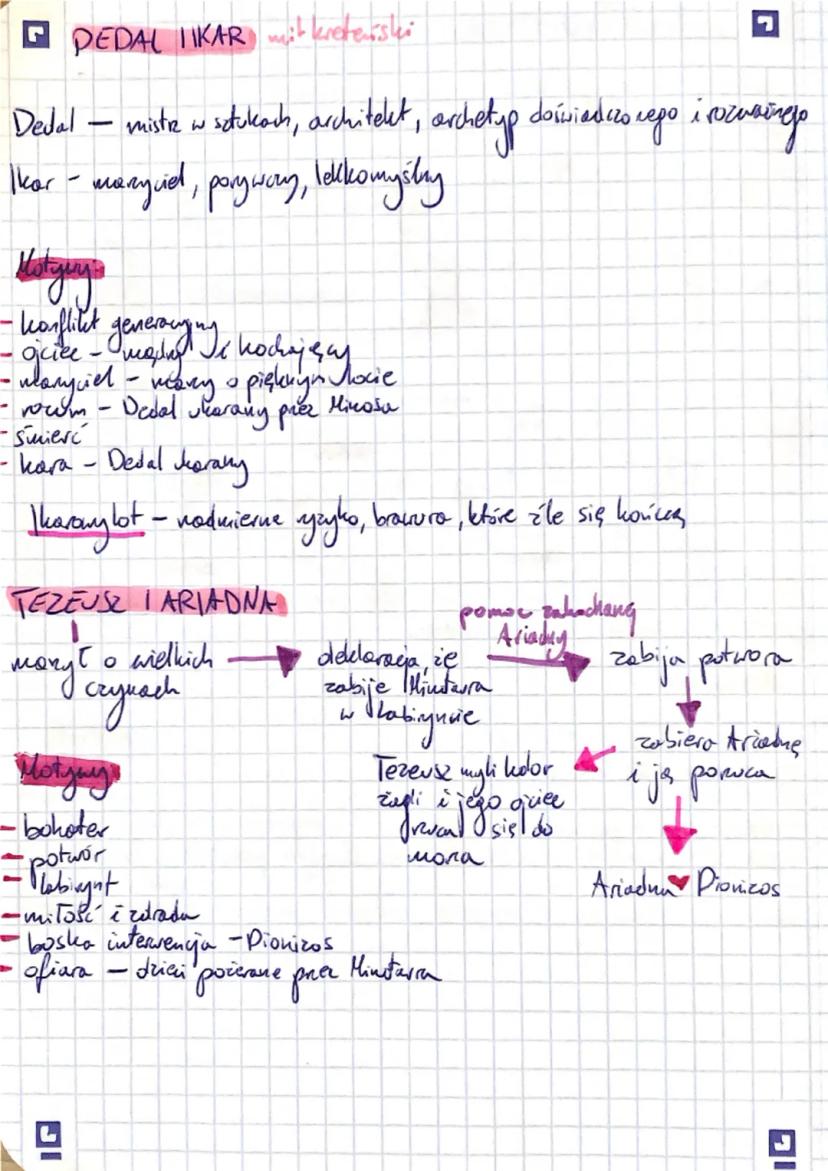 DEDAL I IKAR mit kreteński
Dedal – mistrz w sztukach, architekt, archetyp doświadczonego i rozważnego
Ikar – marzyciel, porywczy, lekkomyślny
Motywy:
- konflikt generacyjny
- ojciec – mądry i kochający
- marzyciel – marzy o pięknym locie
- rozum – Dedal ukarany przez Minosa
- śmierć
- kara – Dedal karany
Ikarowy lot – nadmierne ryzyko, brawura, które źle się kończą
TEZEUSZ I ARIADNA
pomoc zakochanej
Ariadny
marzył o wielkich
czynach
deklaracja, że
zabije Minotaura
w labiryncie
zabija potwora
zabiera Ariadnę
i ją porzuca
Tezeusz myli kolor
żagli i jego ojciec
rzucał się do
morza
Ariadna ♥ Dionizos
Motywy:
- bohater
- potwór
- labirynt
- miłość i zdrada
- boska interwencja – Dionizos
- ofiara – dzieci pożerane przez Minotaura